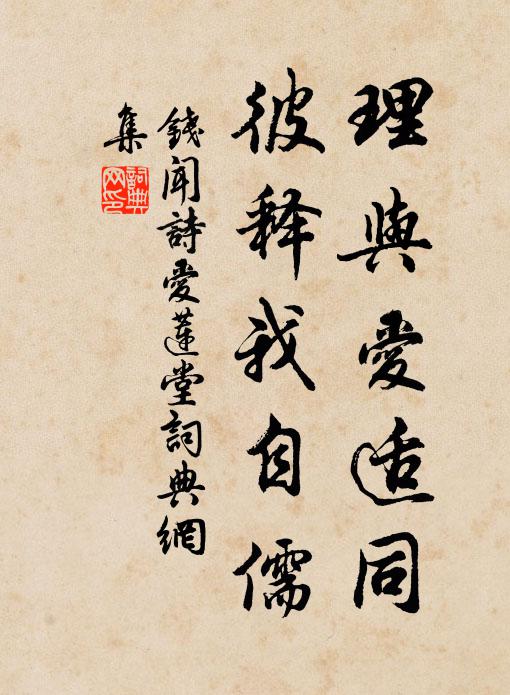 理與愛适同
彼釋我自儒
錢聞詩愛蓮堂詞典網
集
詞典網印